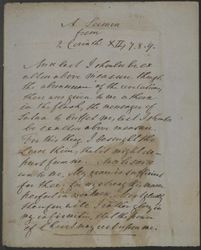 A Sermon
from
2 Corinth XII, 7.8.9.
And lest I should be ex
alted above measure through
the abundance of the revelations,
there was given to me a thorn
in the flesh, the messenger of
Satan to buffet me, lest I should
be exalted above measure.
For this thing I besought the
Lord thrice, that it might de
part from me. And he said
unto me, My grace is sufficient
for thee; for my strength is made
perfect in weakness. Most gladly
therefore will I rather glory in
my infirmities, that the power
of Christ may rest upon me.